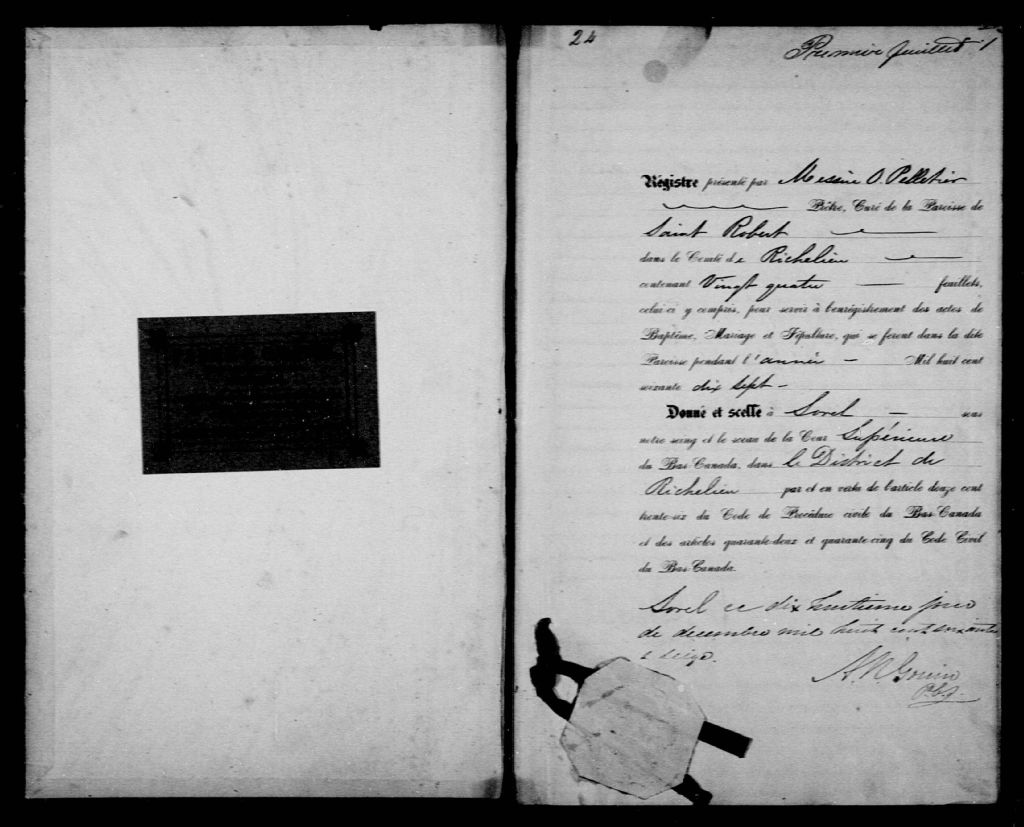 24
Premier feuillet 1
Régistre présenté par Messire O. Pelletier
Prêtre, Curé de la Paroisse de
Saint Robert
dans le Comté de Richelieu
contenant Vingt quatre feuillets,
celui-ci y compris, pour servir à l'enrégistrement des actes de
Baptême, Mariage et Sépulture, qui se feront dans la dite
Paroisse pendant l'année Mil huit cent
soixante dix sept
Donné et scellé à Sorel sous
notre seing et le sceau de la Cour Supérieure
du Bas-Canada, dans le District de
Richelieu par et en vertu de l'article douze cent
trente-six du Code de Procédure civile du Bas-Canada
et des articles quarante-deux et quarante-cinq du Code Civil
du Bas-Canada.
Sorel ce dix huitieme jour
de decembre mil huit cent soixante
& seize.
A. N. Gouin
P.C.S.